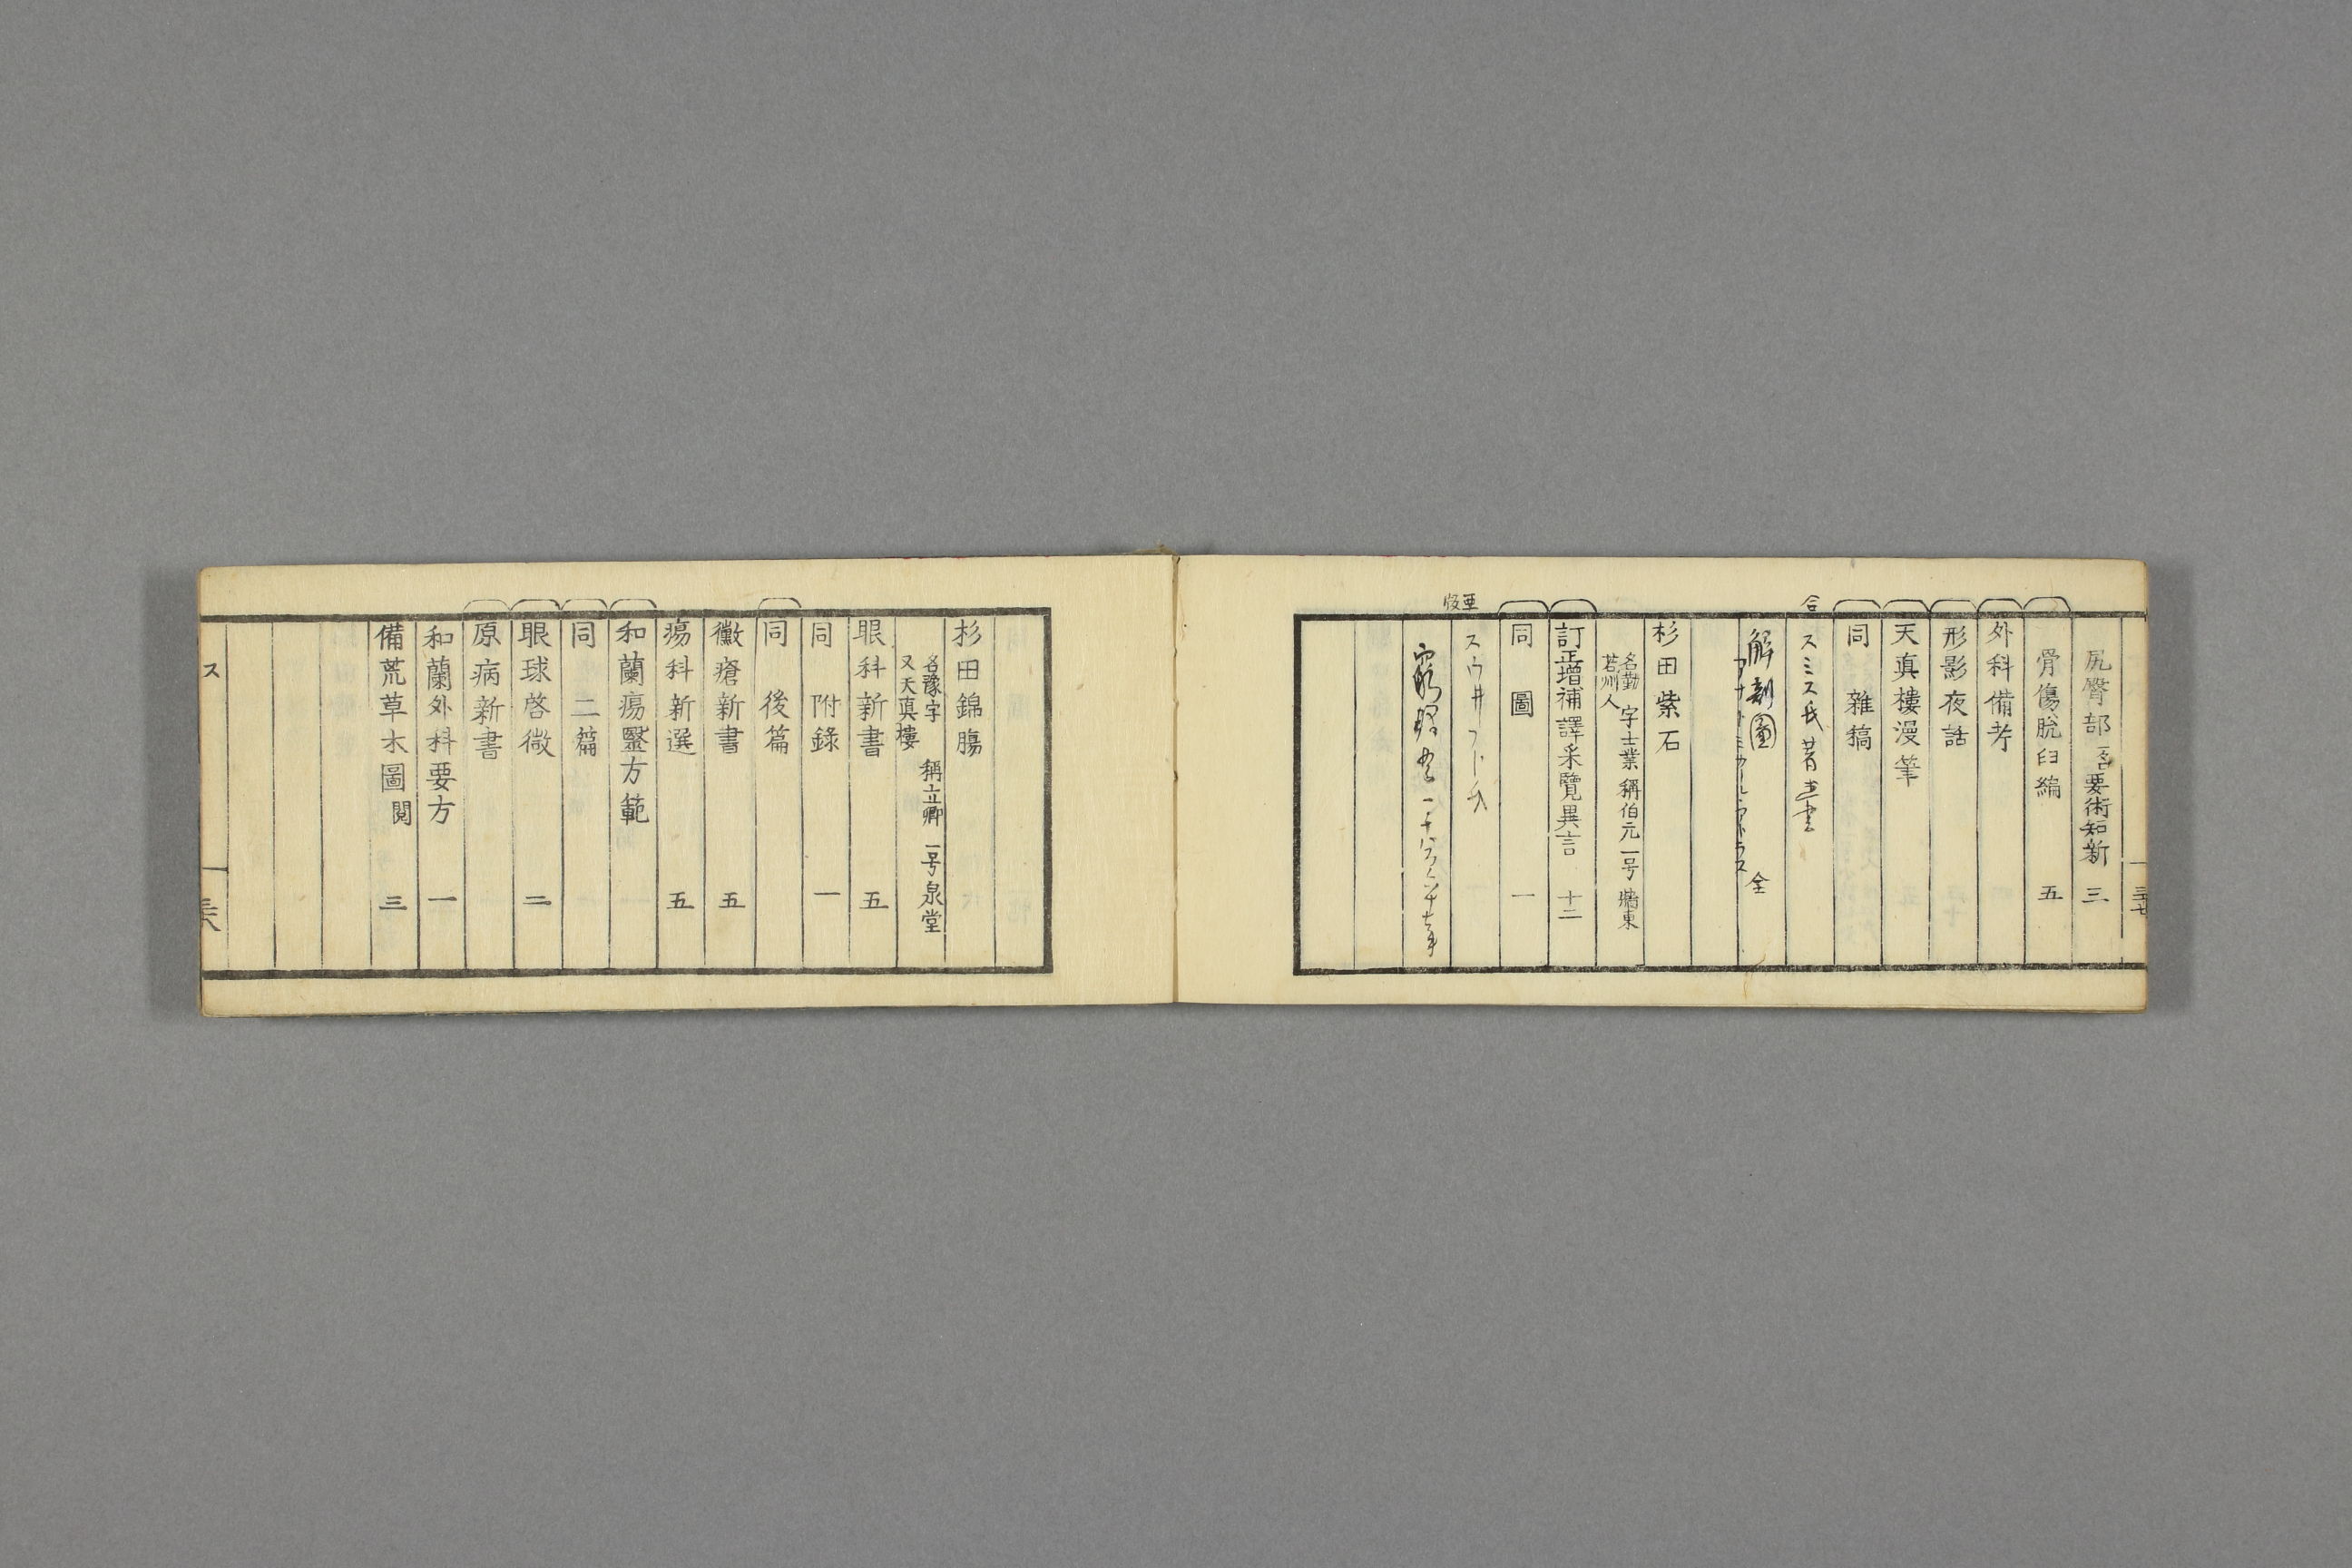 三十七
尻臀部 一名要術知新 三
骨傷脫臼編 五
外科備考
形影夜話
天真樓漫筆
同 雜稿
合 スミス氏著書
解剖圖 全
杉田紫石
名勤 字士業 稱伯元 一号紫東
若州人
訂正增補譯采覽異言 十二
同 圖 一
亜版
スウ井フト氏
杉田錦膓
名豫字 稱立卿 一号泉堂
又天真樓
眼科新書 五
同 附錄 一
同 後篇
黴瘡新書 五
瘍科新選 五
和蘭瘍毉方範
同 二篇
眼球啓微 二
原病新書
和蘭外科要方 一
備荒草木圖 閲 三
ス